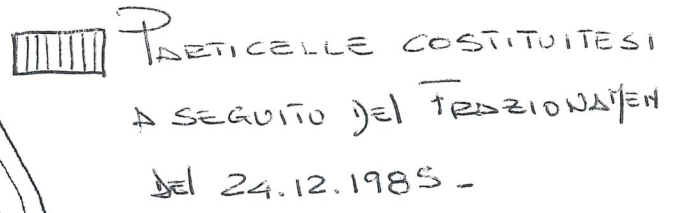 PARTICELLE COSTITUITESI
A SEGUITO DEL FRAZIONAMEN
DEL 24.12.1985-